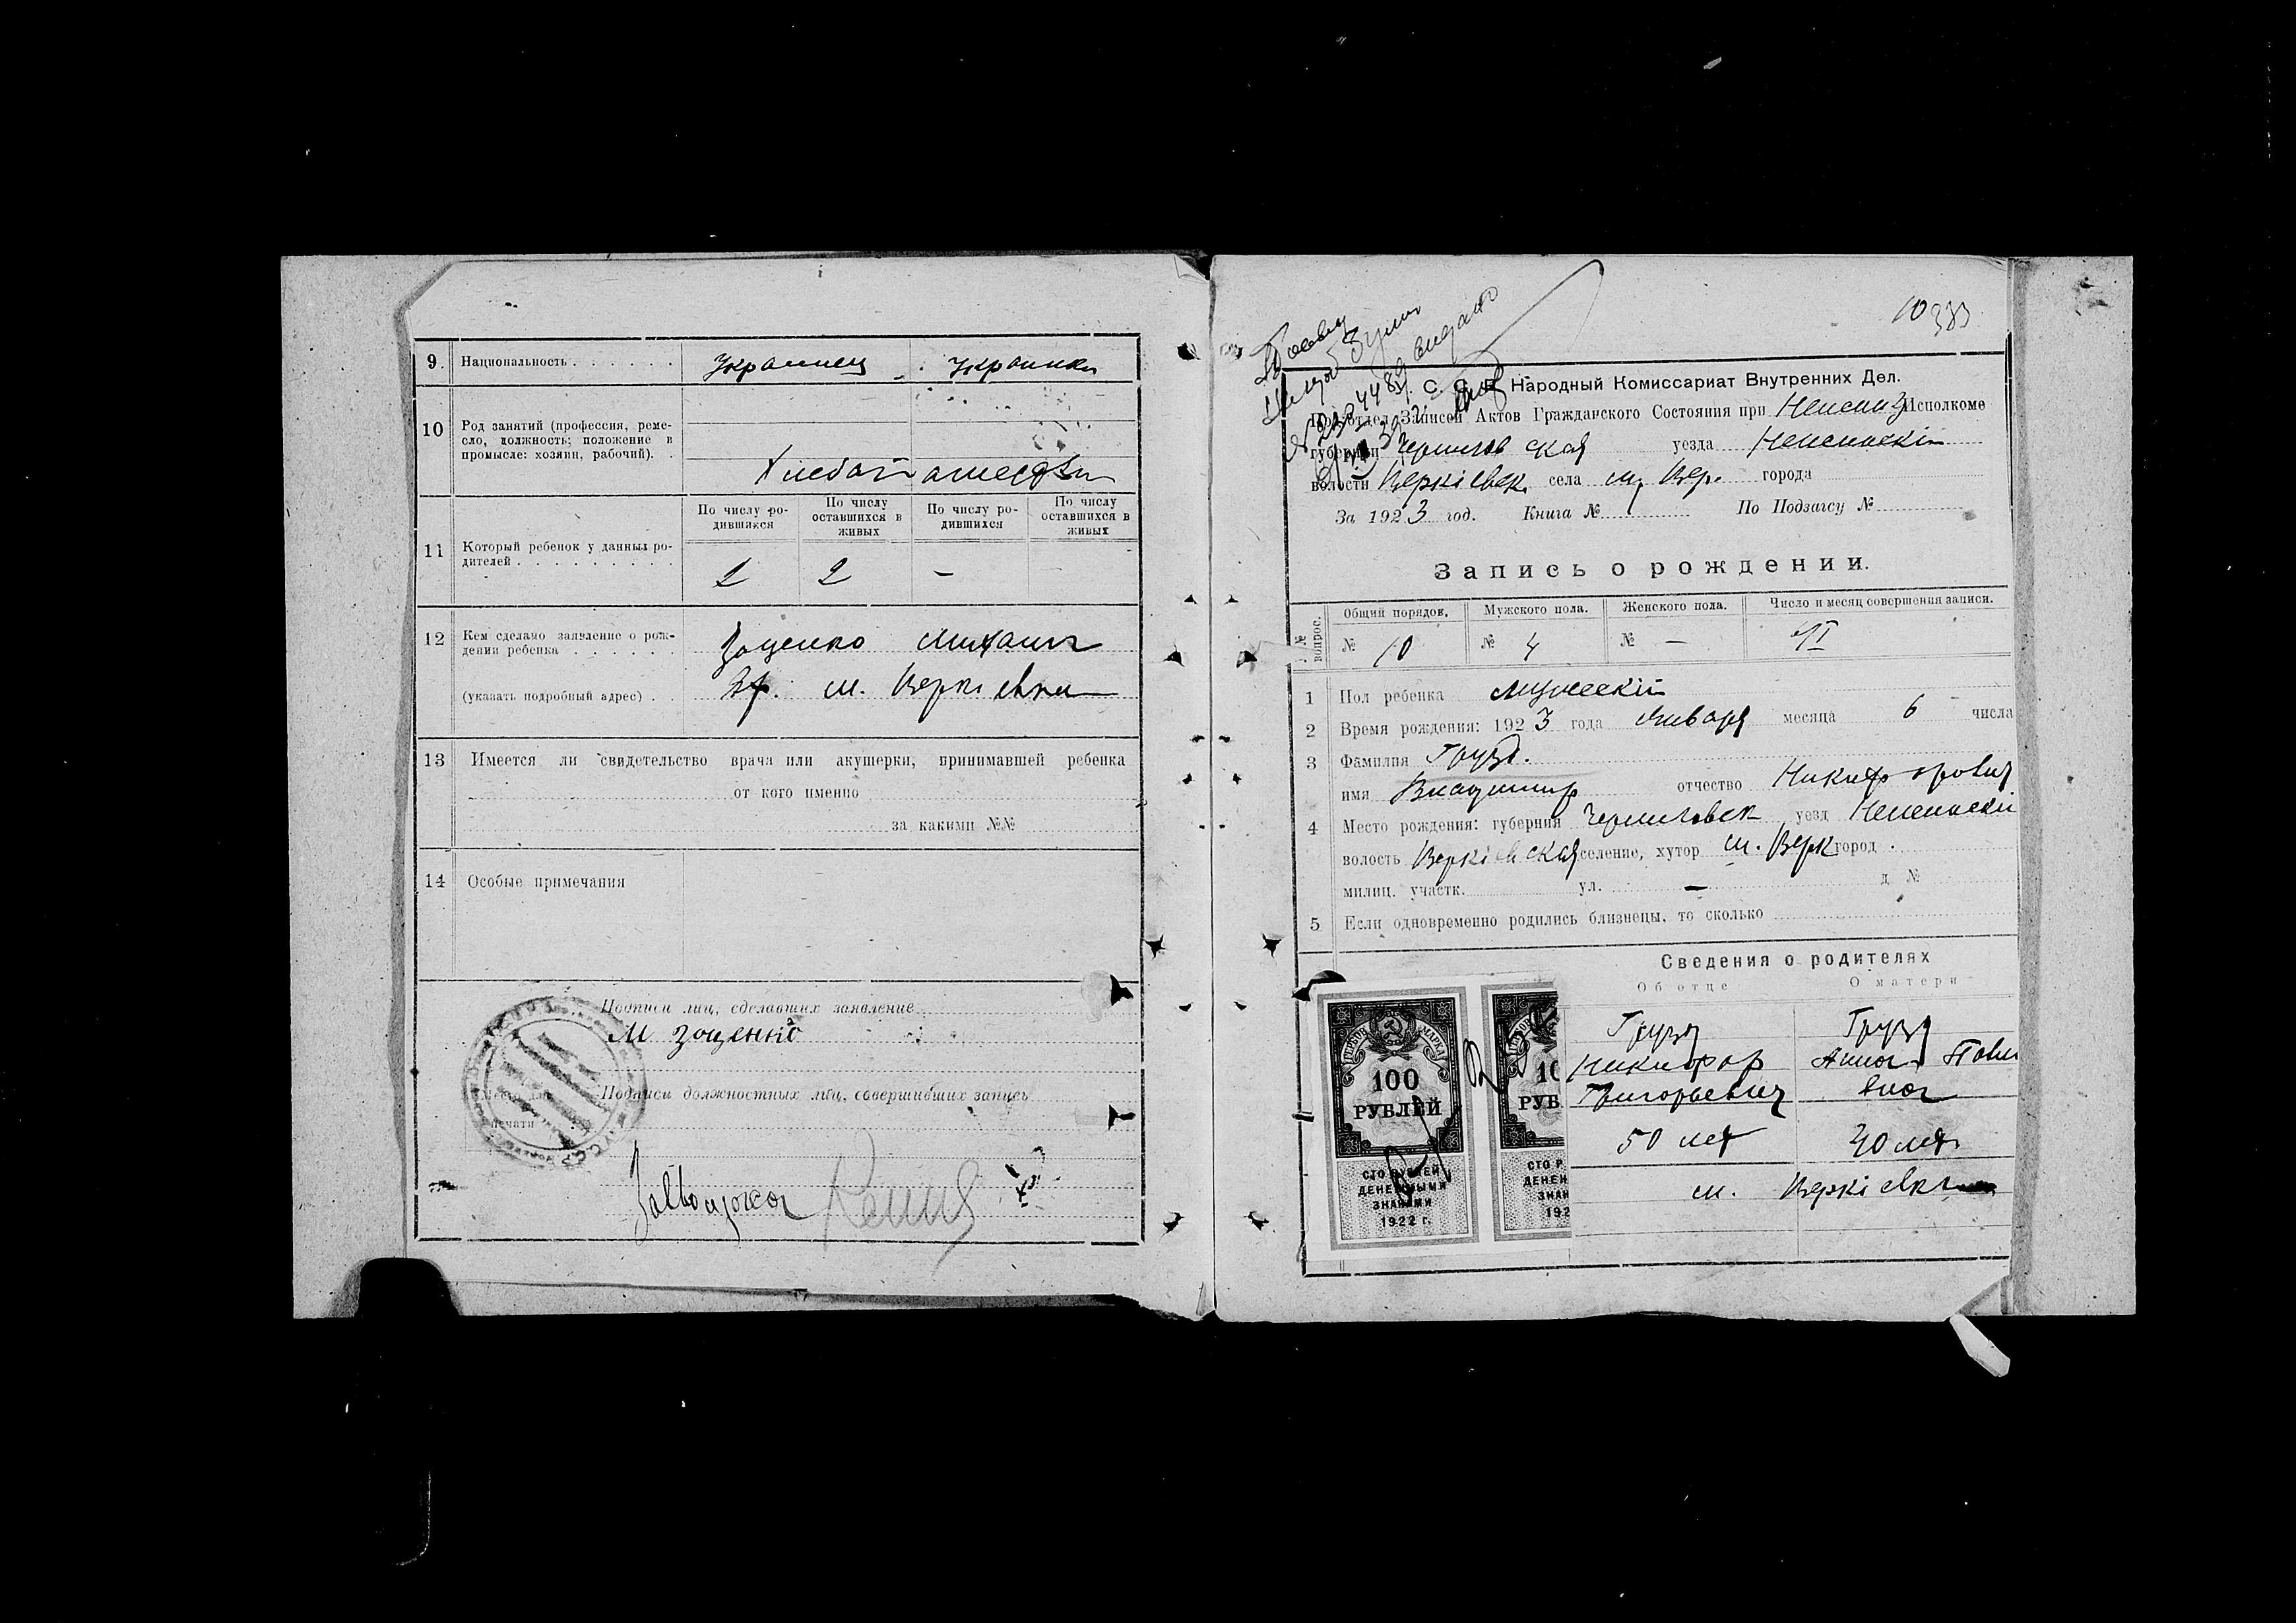 9. Национальность . . . . . . . Украинец Украинка
10 Род занятий (профессия, реме-
сло, должность; положение в
промысле: хозяин, рабочий). .
По числу ро-
дившихся
По числу
оставшихся в
живых
По числу ро-
дившихся
По числу
оставшихся в
живых
11 Который ребенок у данных ро-
дителей . . . . . . . . . 2 2 –
12 Кем сделано заявление о рож-
дении ребенка . . . . . . Зощенко Михаил
(указать подробный адрес) . . гр. м. Веркіевки
13 Имеется ли свидетельство врача или акушерки, принимавшей ребенка
от кого именно
за какими №№
14 Особые примечания
Подписи лиц, сделавших заявление
М Зощенко
Подписи должностных лиц, совершивших запись
печати
10
383
С. С. Р. Народный Комиссариат Внутренних Дел.
Подотдел Записей Актов Гражданского Состояния при Исполкоме
губернии Черниговская уезда Неженскій
волости Веркіевск. села м. Вер. города
За 1923 год. Книга № По Подзагсу №
Запись о рождении.
№№ вопрос. Общий порядов. Мужского пола. Женского пола. Число и месяц совершения записи.
№ 10 № 4 № –
1 Пол ребенка мужескій
2 Время рождения: 1923 года Января месяца 6 числа
3 Фамилия Грузд.
имя Владимир отчество Никифорович
4 Место рождения: губерния Черниговск уезд Неженскій
волость Веркіевская селение, хутор м. Верк город .
милиц. участк. ул. – д №
5 Если одновременно родились близнецы, то сколько
Сведения о родителях
Об отце О матери
Грузд Грузд
Никифор Анна Павл
Григорьевич вна
50 лет 40 лет
м. Веркіевка
ГЕРБОВ. МАРКА
100
РУБЛЕЙ
СТО РУБЛЕЙ
ДЕНЕЖНЫМИ
ЗНАКАМИ
1922 г.
10
РУБ
СТО Р
ДЕНЕЖ
ЗНАК
192